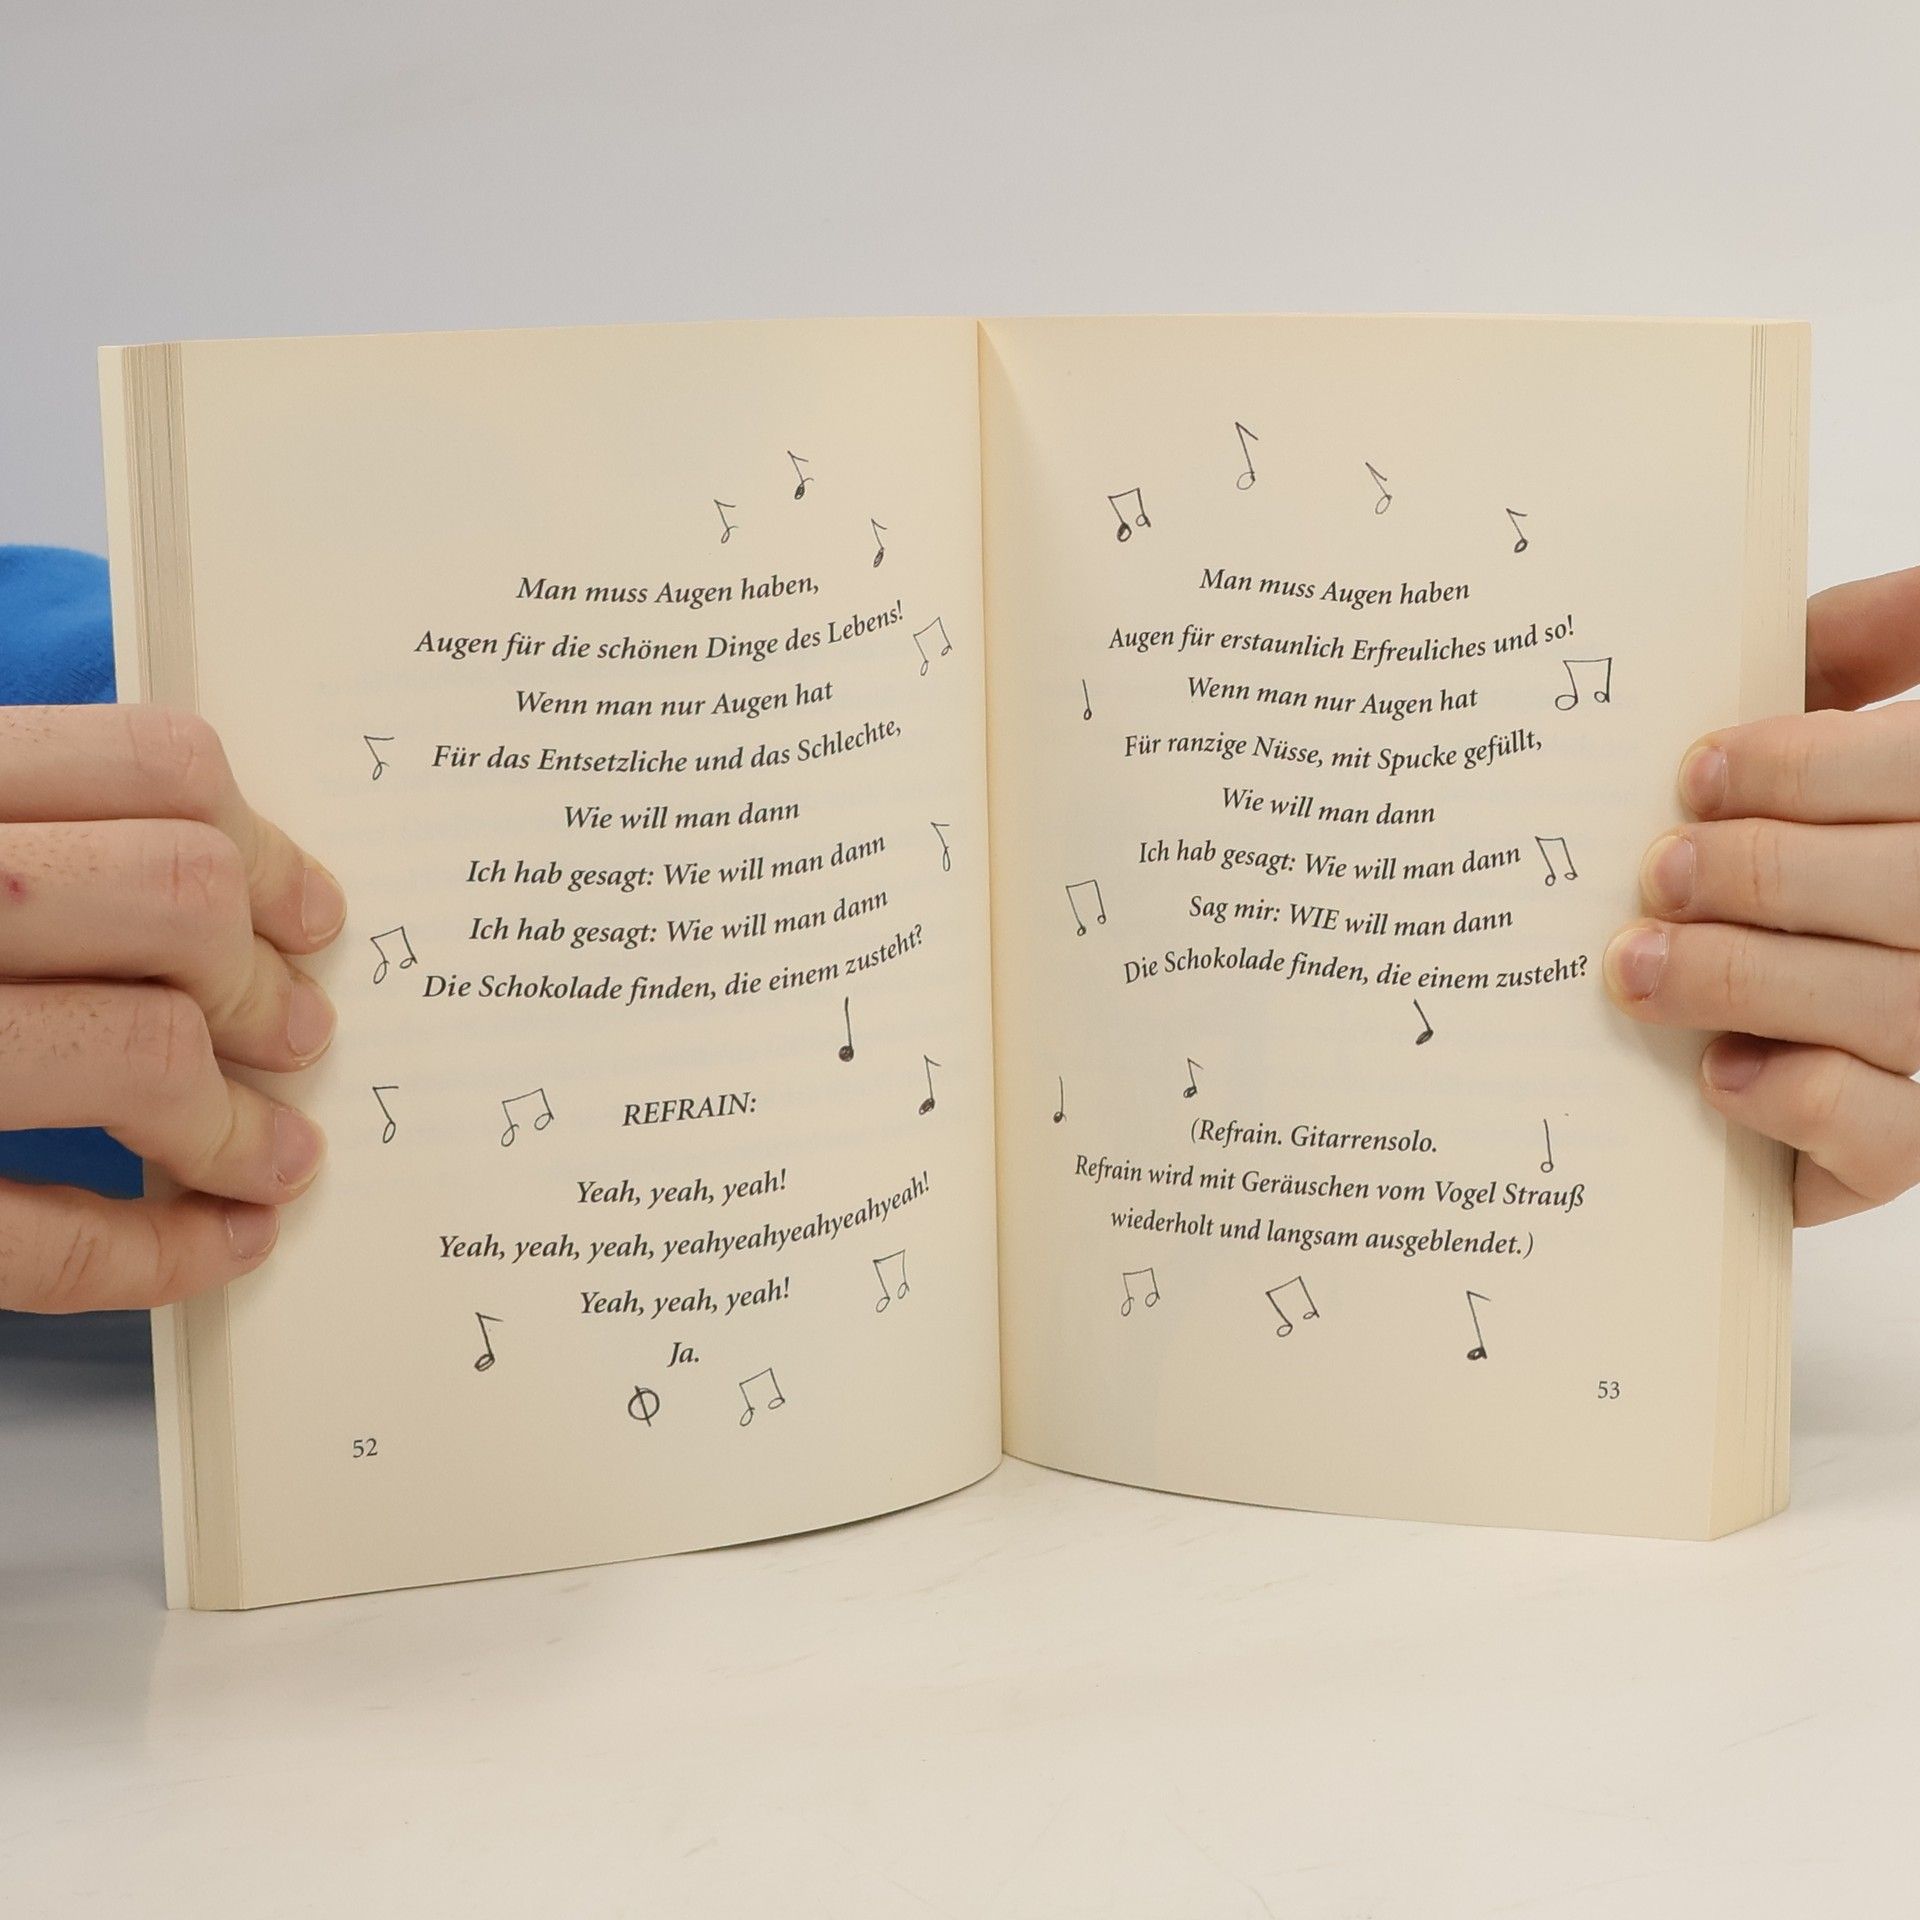 Man muss Augen haben,
Augen für die schönen Dinge des Lebens!
Wenn man nur Augen hat
Für das Entsetzliche und das Schlechte,
Wie will man dann
Ich hab gesagt: Wie will man dann
Ich hab gesagt: Wie will man dann
Die Schokolade finden, die einem zusteht?
REFRAIN:
Yeah, yeah, yeah!
Yeah, yeah, yeah, yeahyeahyeahyeahyeah!
Yeah, yeah, yeah!
Ja.
52
Man muss Augen haben
Augen für erstaunlich Erfreuliches und so!
Wenn man nur Augen hat
Für ranzige Nüsse, mit Spucke gefüllt,
Wie will man dann
Ich hab gesagt: Wie will man dann
Sag mir: WIE will man dann
Die Schokolade finden, die einem zusteht?
(Refrain. Gitarrensolo.
Refrain wird mit Geräuschen vom Vogel Strauß
wiederholt und langsam ausgeblendet.)
53